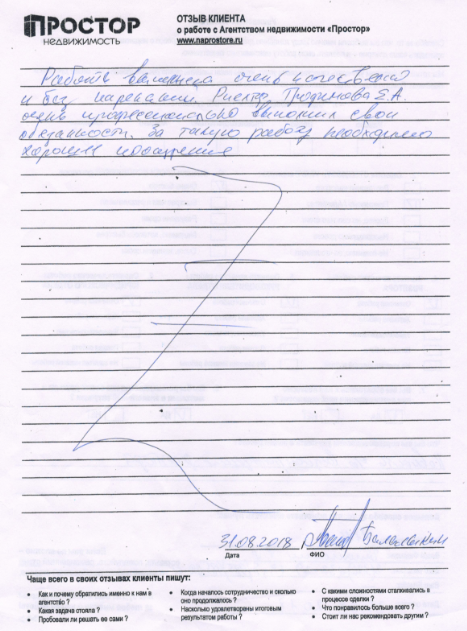 ПРОСТОР
НЕДВИЖИМОСТЬ
ОТЗЫВ КЛИЕНТА
о работе с Агентством недвижимости «Простор»
www.naprostore.ru
Работа выполнена очень качественно
и без нарекании. Риелтор Е.А.
очень профессионально выполнил свои
обязанности. За такую работу необходимо
хорошее поощрение
31.08.2018
Дата ФИО
Чаще всего в своих отзывах клиенты пишут:
• Как и почему обратились именно к нам в агентство ?
• Какая задача стояла ?
• Пробовали ли решать ее сами ?
• Когда началось сотрудничество и сколько оно продолжалось ?
• Насколько удовлетворены итоговым результатом работы ?
• С какими сложностями сталкивались в процессе сделки ?
• Что понравилось больше всего ?
• Стоит ли нас рекомендовать другим ?